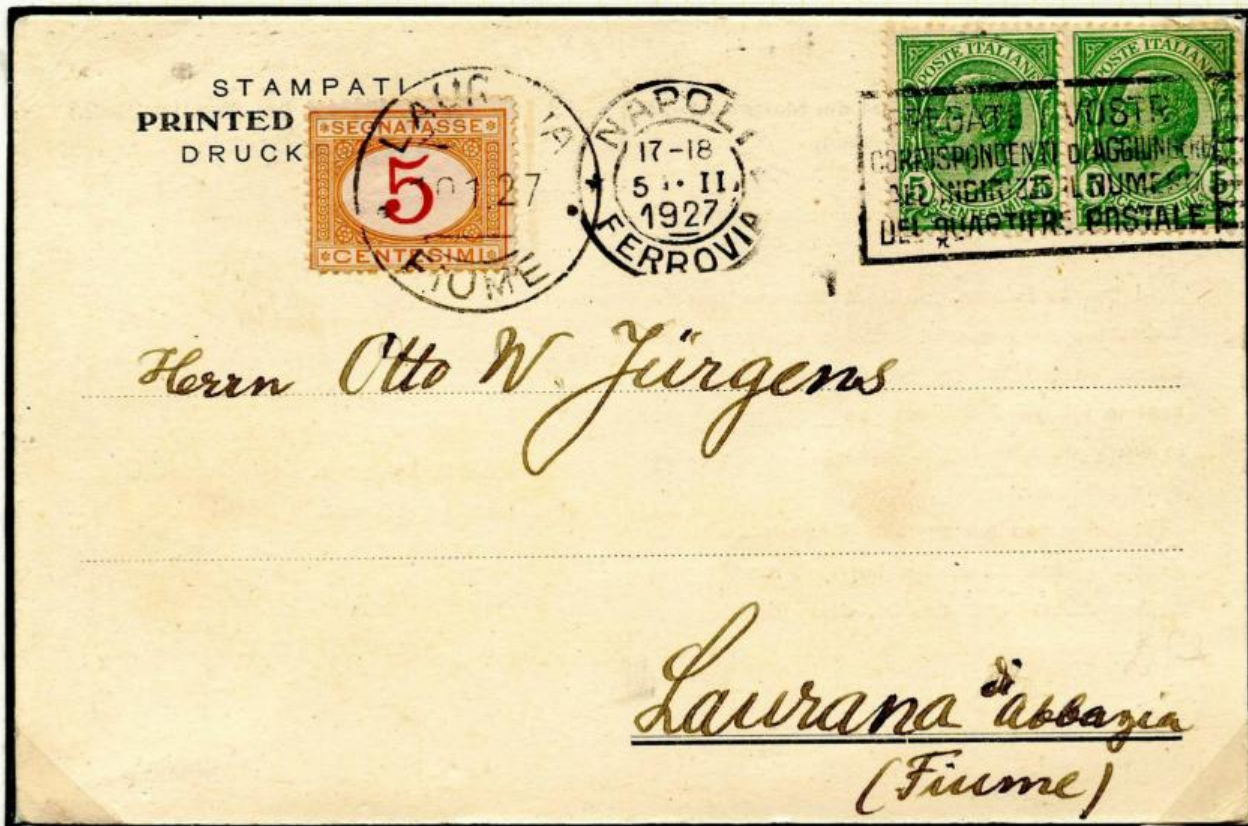 STAMPATI
PRINTED
DRUCK
SEGNATASSE
5
CENTESIMI
FIUME
NAPOLI
17-18
5 II
1927
FERROVIA
POSTE ITALIANE
POSTE ITALIANE
5 5 5 5
VOSTRI
CORRISPONDENTI DI AGGIUNGERE
NUMERO
DEL QUARTIERE POSTALE
Herrn Otto W. Jürgens
Laurana di abbazia
(Fiume)